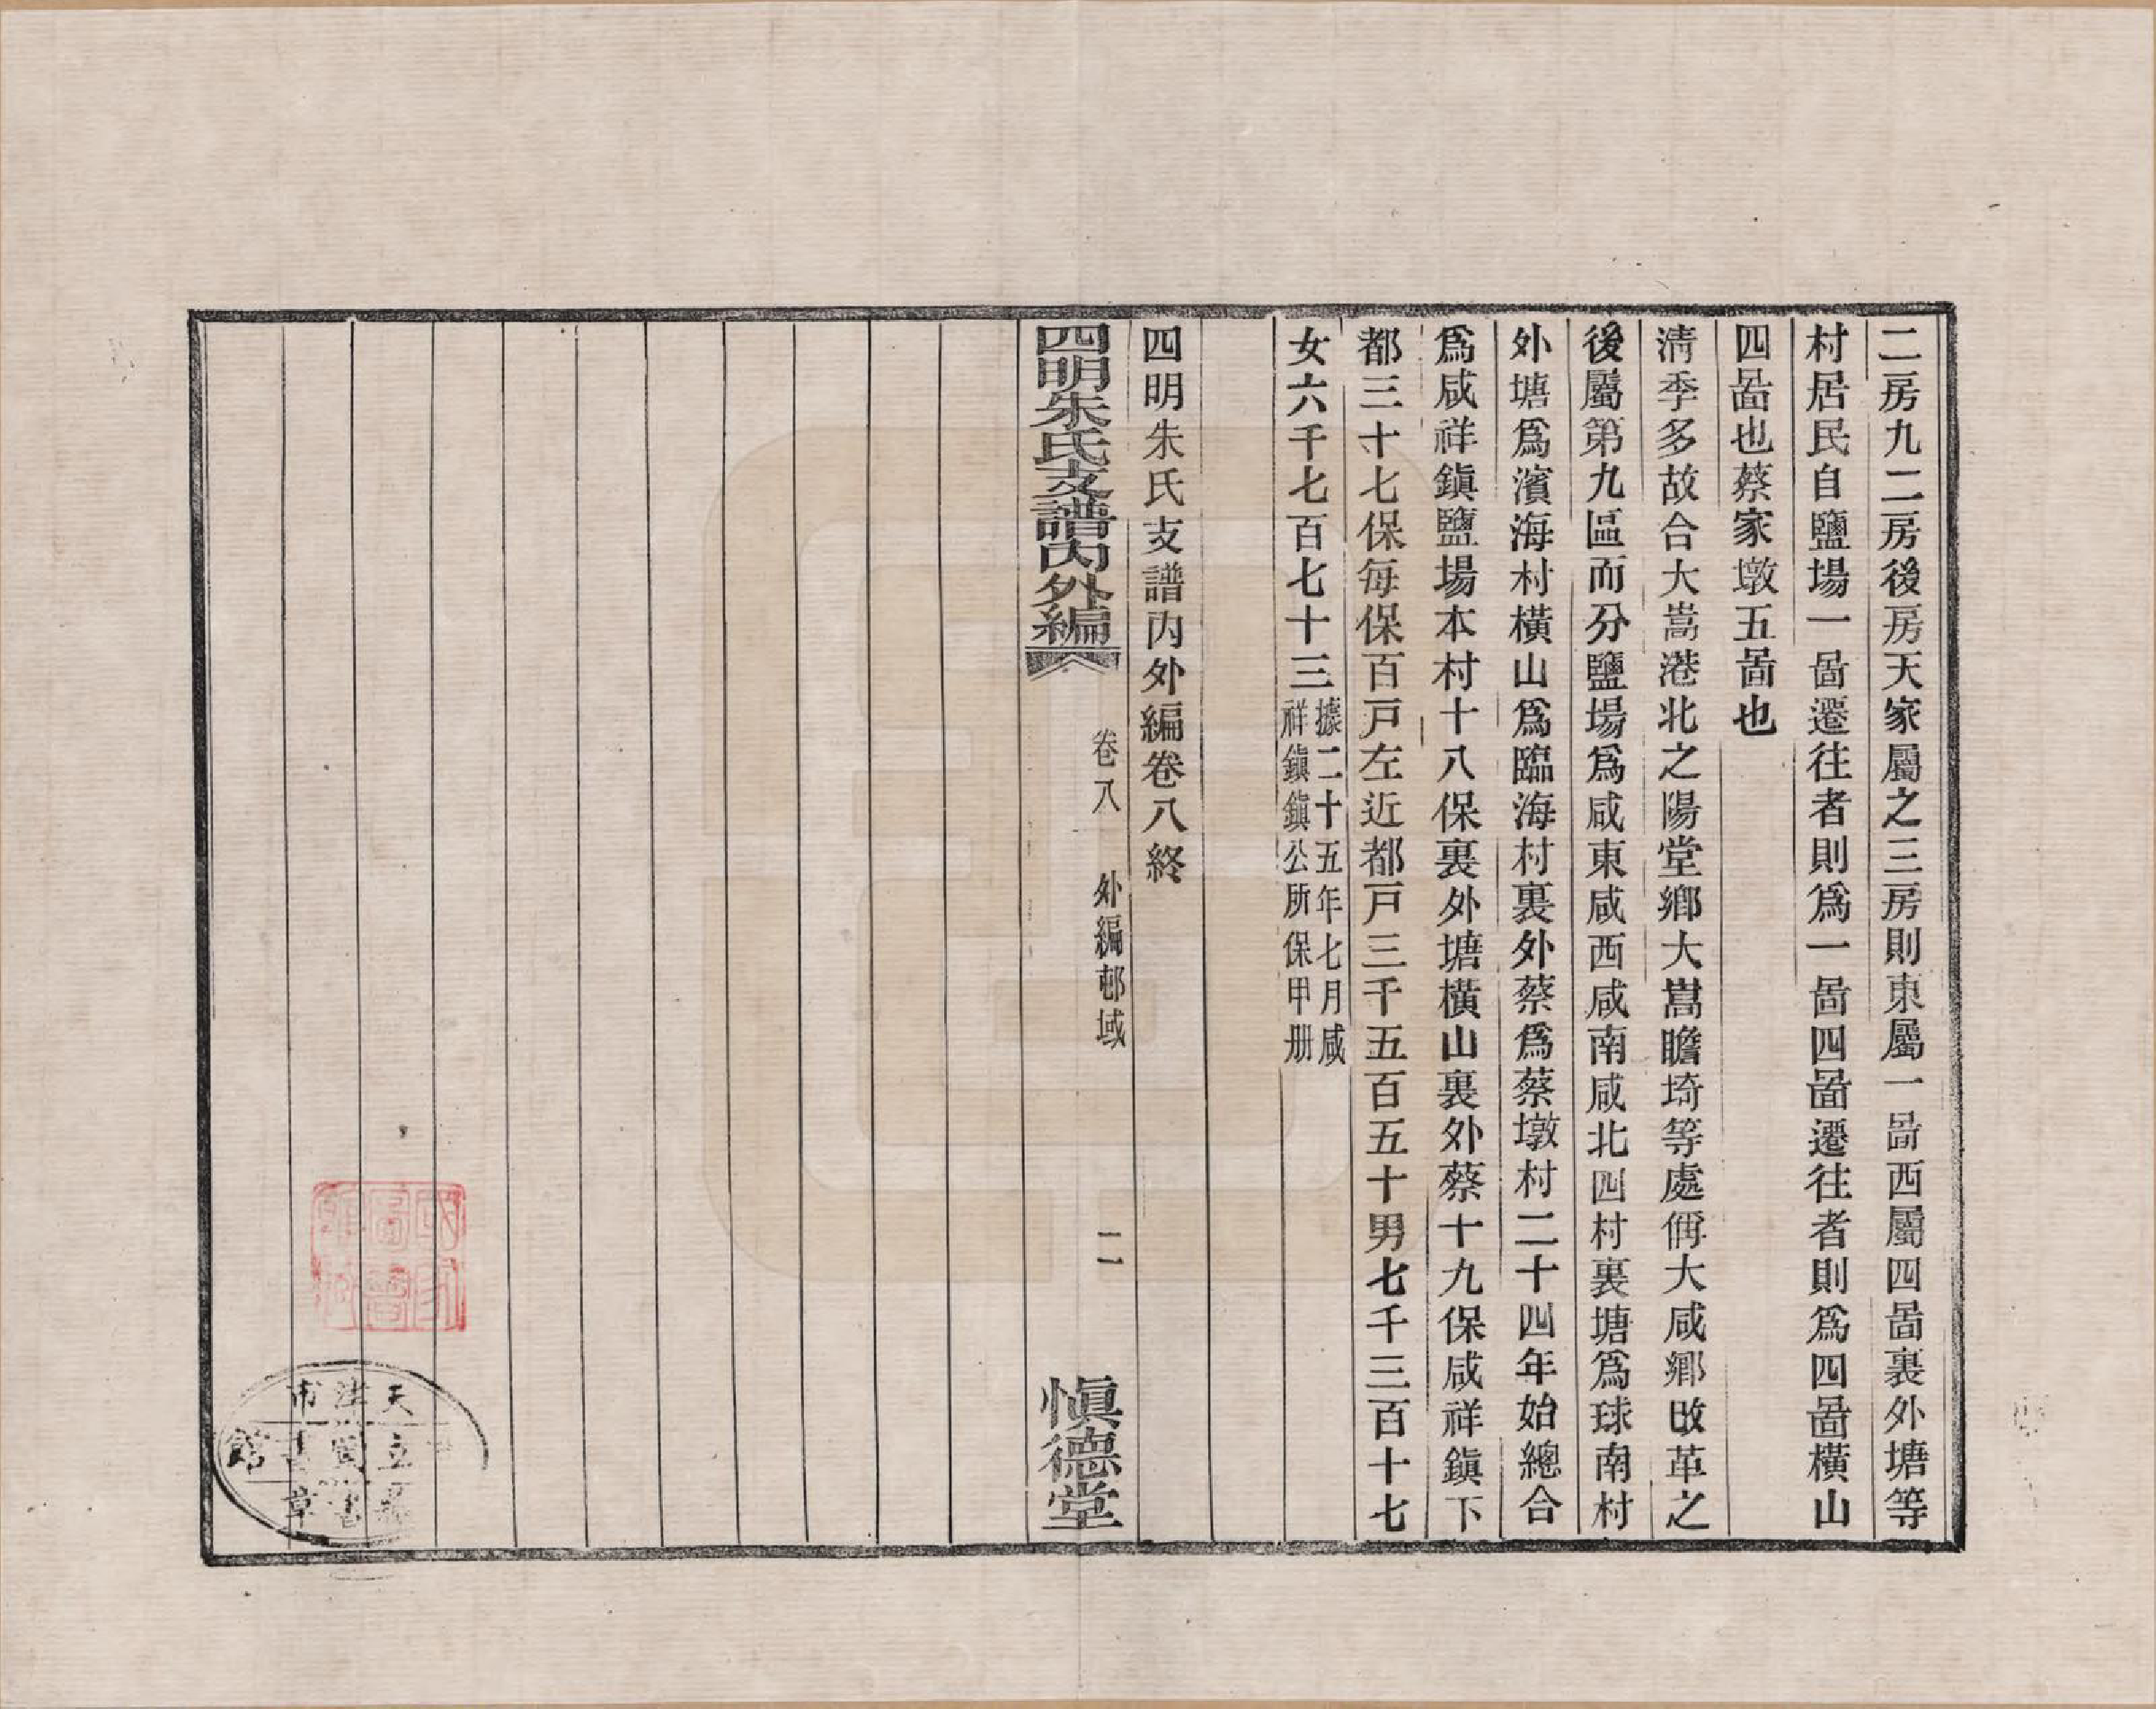 二房九二房後房天家屬之三房則東屬一啚西屬四啚裏外塘等
村居民自鹽場一啚遷往者則爲一啚四啚遷往者則爲四啚橫山
四啚也蔡家墩五啚也
淸季多故合大嵩港北之陽堂鄕大嵩瞻埼等處偁大咸鄕改革之
後屬第九區而分鹽場爲咸東咸西咸南咸北四村裏塘爲球南村
外塘爲濱海村橫山爲臨海村裏外蔡爲蔡墩村二十四年始總合
爲咸祥鎭鹽場本村十八保裏外塘橫山裏外蔡十九保咸祥鎭下
都三十七保每保百戸左近都戸三千五百五十男七千三百十七
女六千七百七十三
據二十五年七月咸
祥鎭鎭公所保甲册
四明朱氏支譜內外編卷八終
四明朱氏支譜內外編
卷八
外編邨域
二
愼德堂
天津市
立
館
章